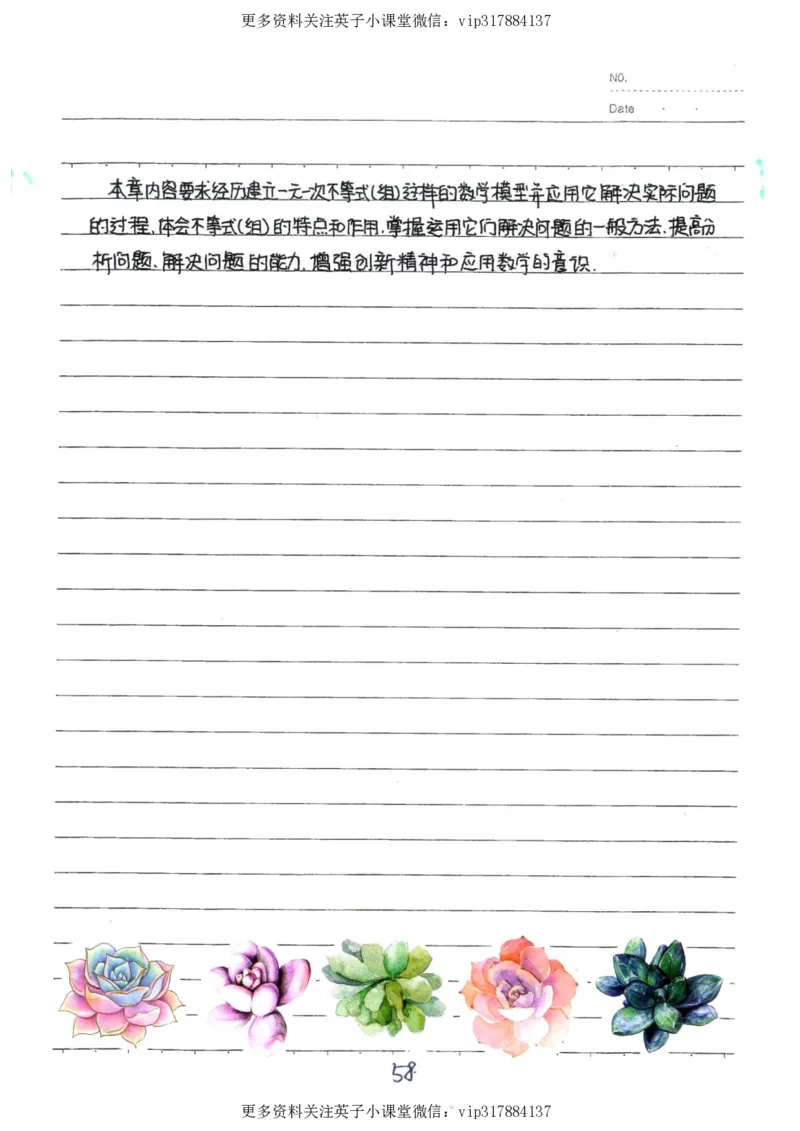 更多资料关注英子小课堂微信：vip317884137
NO.
Date
本章内容要求经历建立一元一次不等式(组)这样的数学模型并应用它解决实际问题
的过程,体会不等式(组)的特点和作用,掌握运用它们解决问题的一般方法,提高分
析问题、解决问题的能力,增强创新精神和应用数学的意识.
58
更多资料关注英子小课堂微信：vip317884137